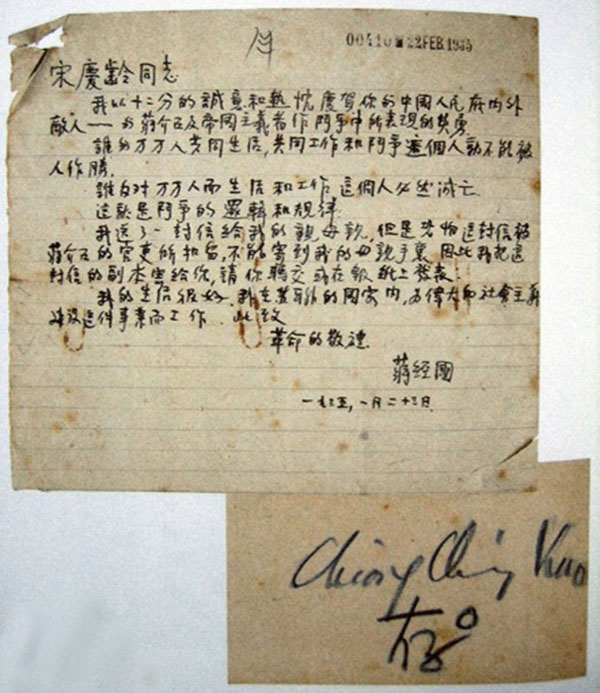 00410 22 FEB. 1935
宋慶齡同志
我以十二分的誠意和熱忱慶賀你的中國人民底内外
敵人——为蔣介石及帝國主義者作鬥爭中所表現的英勇
誰为万万人共同生活,共同工作和鬥爭 這個人就不能被
人作勝.
誰反对万万人而生活和工作 這個人必然滅亡
這就是鬥爭的邏輯和規律
我送了一封信給我的親母親,但是恐怕這封信被
蔣介石的官吏所扣留,不能寄到我的母親手裏 因此我把這
封信的副本寄給你,請你轉交或在報紙上發表.
我的生活很好.我在蘇聯的国家内,為偉大的社會主義
建設這件事業而工作. 此致
革命的敬禮
蔣经國
一九三五,一月二十三日.
Chiang Ching Kuo